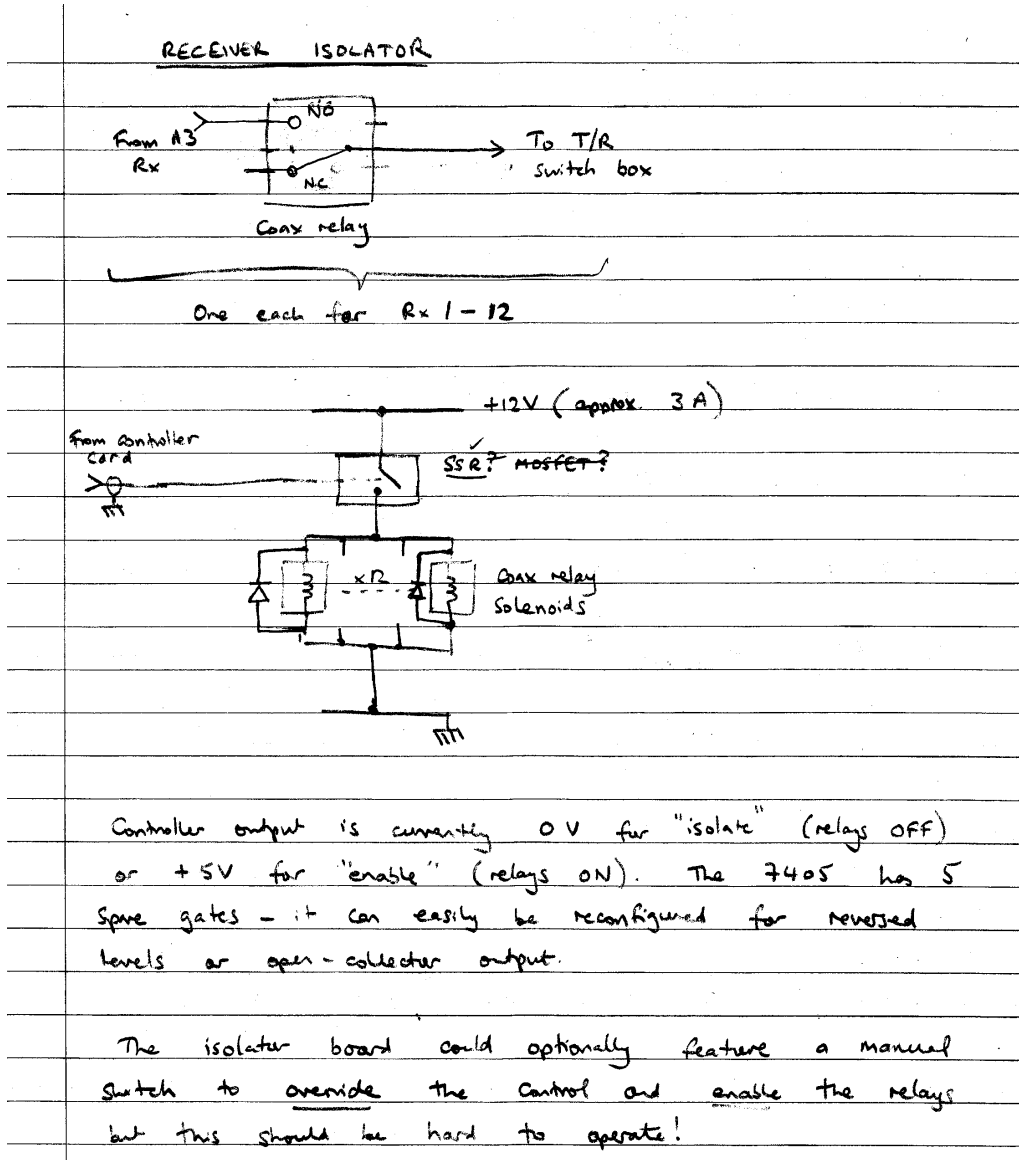 RECEIVER ISOLATOR
NO
From A3
Rx
N.C
To T/R
switch box
Coax relay
One each for Rx 1 - 12
+12V (approx. 3 A)
From controller
card
SSR? ✓ MOSFET?
x12
Coax relay
Solenoids
Controller output is currently 0 V for "isolate" (relays OFF)
or +5V for "enable" (relays ON). The 7405 has 5
spare gates - it can easily be reconfigured for reversed
levels or open-collector output.
The isolator board could optionally feature a manual
switch to override the control and enable the relays
but this should be hard to operate!